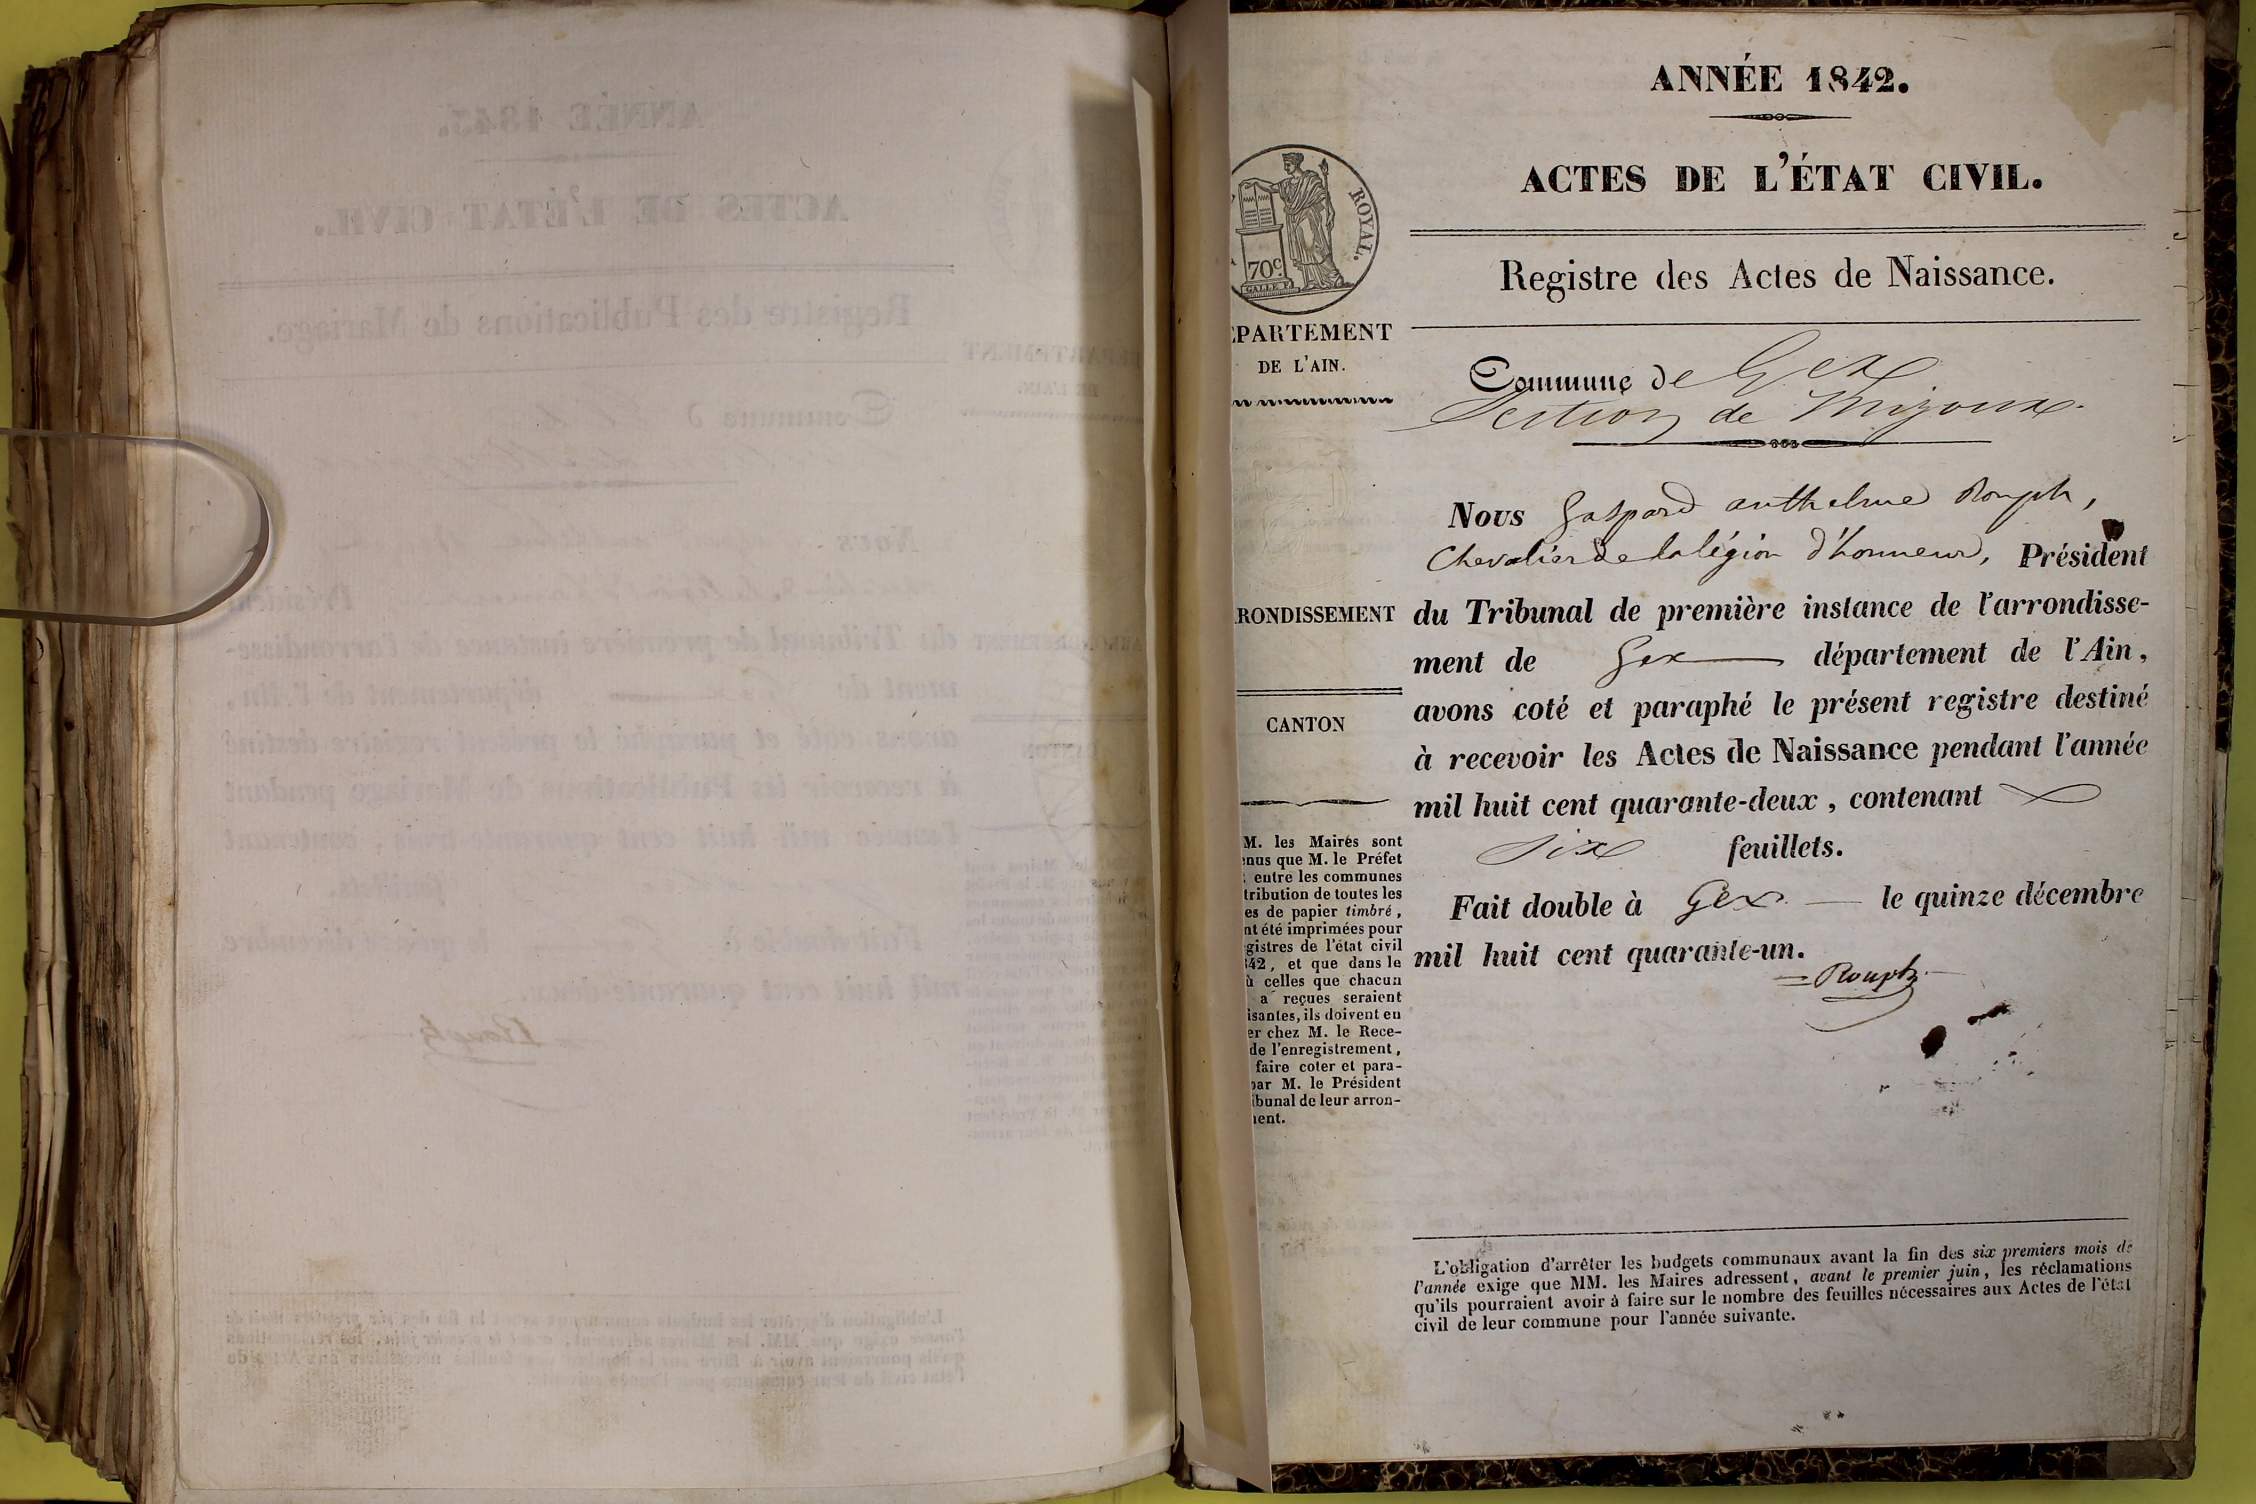 ANNÉE 1842.
ACTES DE L'ÉTAT CIVIL.
Registre des Actes de Naissance.
ROYAL.
70c.
GALLE F.
DE L'AIN.
CANTON
M. les Maires sont
que M. le Préfet
entre les communes
de toutes les
es de papier timbré,
nt été imprimées pour
gistres de l'état civil
42, et que dans le
ù celles que chacun
a reçues seraient
isantes, ils doivent en
er chez M. le Rece-
de l'enregistrement,
faire coter et para-
par M. le Président
bunal de leur arron-
ent.
Commune de Gex
Section de Mijoux.
Nous Gaspard anthelme Rouph,
Chevalier de la légion d'honneur, Président
du Tribunal de première instance de l'arrondisse-
ment de Gex département de l'Ain,
avons coté et paraphé le présent registre destiné
à recevoir les Actes de Naissance pendant l'année
mil huit cent quarante-deux, contenant
six feuillets.
Fait double à Gex. le quinze décembre
mil huit cent quarante-un.
Rouph
L'obligation d'arrêter les budgets communaux avant la fin des six premiers mois de
l'année exige que MM. les Maires adressent, avant le premier juin, les réclamations
qu'ils pourraient avoir à faire sur le nombre des feuilles nécessaires aux Actes de l'état
civil de leur commune pour l'année suivante.